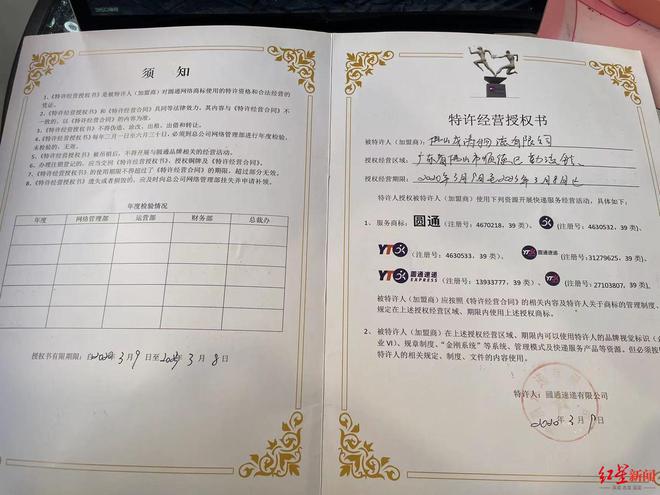 须 知
1、《特许经营授权书》是被特许人（加盟商）对圆通网络商标使用的特许资格和合法经营的
凭证。
2、《特许经营授权书》和《特许经营合同》具同等法律效力，其内容与《特许经营合同》不
一致的，以《特许经营合同》的内容为准。
3、《特许经营授权书》不得伪造、涂改、出租、出借和转让。
4、《特许经营授权书》每年三月一日至六月三十日，必须到总公司网络管理部进行年度检验，
未检验的，无效。
5、《特许经营授权书》被吊销后，不得开展与圆通品牌相关的经营活动。
6、办理注销登记的，应当交回《特许经营授权书》、授权铜牌及《特许经营合同》。
7、《特许经营授权书》的使用期限不得超过了《特许经营合同》的期限，超过部分无效。
8、《特许经营授权书》遗失或者损毁的，应及时向总公司网络管理部挂失并申请补领。
年度检验情况
年度 网络管理部 运营部 财务部 总裁办
授权书有限期限：自2020年3月9日至2025年3月8日
特许经营授权书
被特许人（加盟商）：佛山 物流有限公司
授权经营区域：广东省佛山市顺德区勒流镇
授权经营期限：2020年3月9日至2025年3月8日止
特许人授权被特许人（加盟商）使用下列资源开展快递服务经营活动，具体如下：
1、服务商标：圆通（注册号：4670218，39 类）、（注册号：4630532，39 类）、
YTO（注册号：4630533，39 类）、YTO圆通速递（注册号：31279625，39 类）、
YTO 圆通速递 EXPRESS（注册号：13933777，39 类）、（注册号：27103807，39 类）
被特许人（加盟商）应按照《特许经营合同》的相关内容及特许人关于商标的管理制度、
规定在上述授权经营区域、期限内使用上述授权商标。
2、被特许人（加盟商）在上述授权经营区域、期限内可以使用特许人的品牌视觉标识（企
业 VI）、规章制度、“金刚系统”等系统、管理模式及快递服务产品等资源。但必须按
特许人的相关规定、制度、文件的内容使用。
特许人：圆通速递有限公司
2020年3月9日
红星新闻